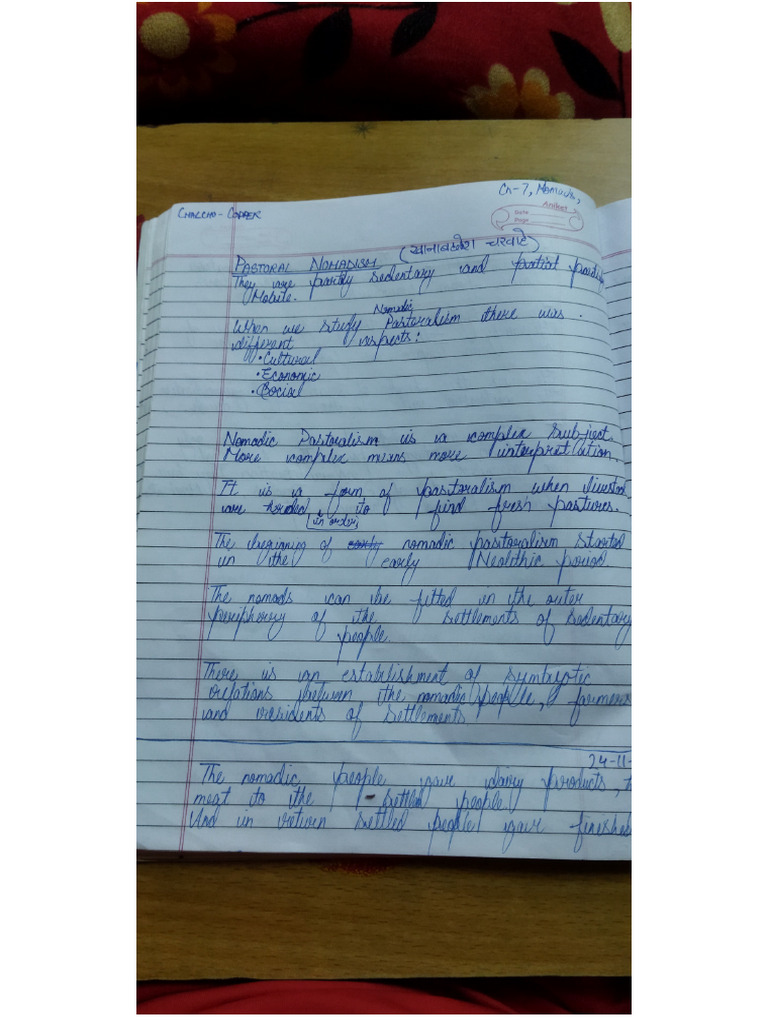 Ch-7, Nomads,
Anilent
Date
Page
CHALCHO - COPPER
PASTORAL NOMADISM (खानाबदोश चरवाहे)
They are partly sedentary and partial
Mobile.
Nomadic
When we study Pastoralism there was.
different aspects:
• Cultural
• Economic
• Social
Nomadic Pastoralism is a complex subject.
More complex means more interpretation.
It is a form of pastoralism when
are herded to find fresh pastures.
in order
The begining of early nomadic pastoralism started
in the early Neolithic period
The nomads can be fitted in the outer
periphery of the settlements of sedentary
people.
There is an establishment of
relations between the nomadic people, farmers
and residents of settlements
24-11-
The nomadic people gave dairy products,
meat to the settled people
And in return settled people gave finished